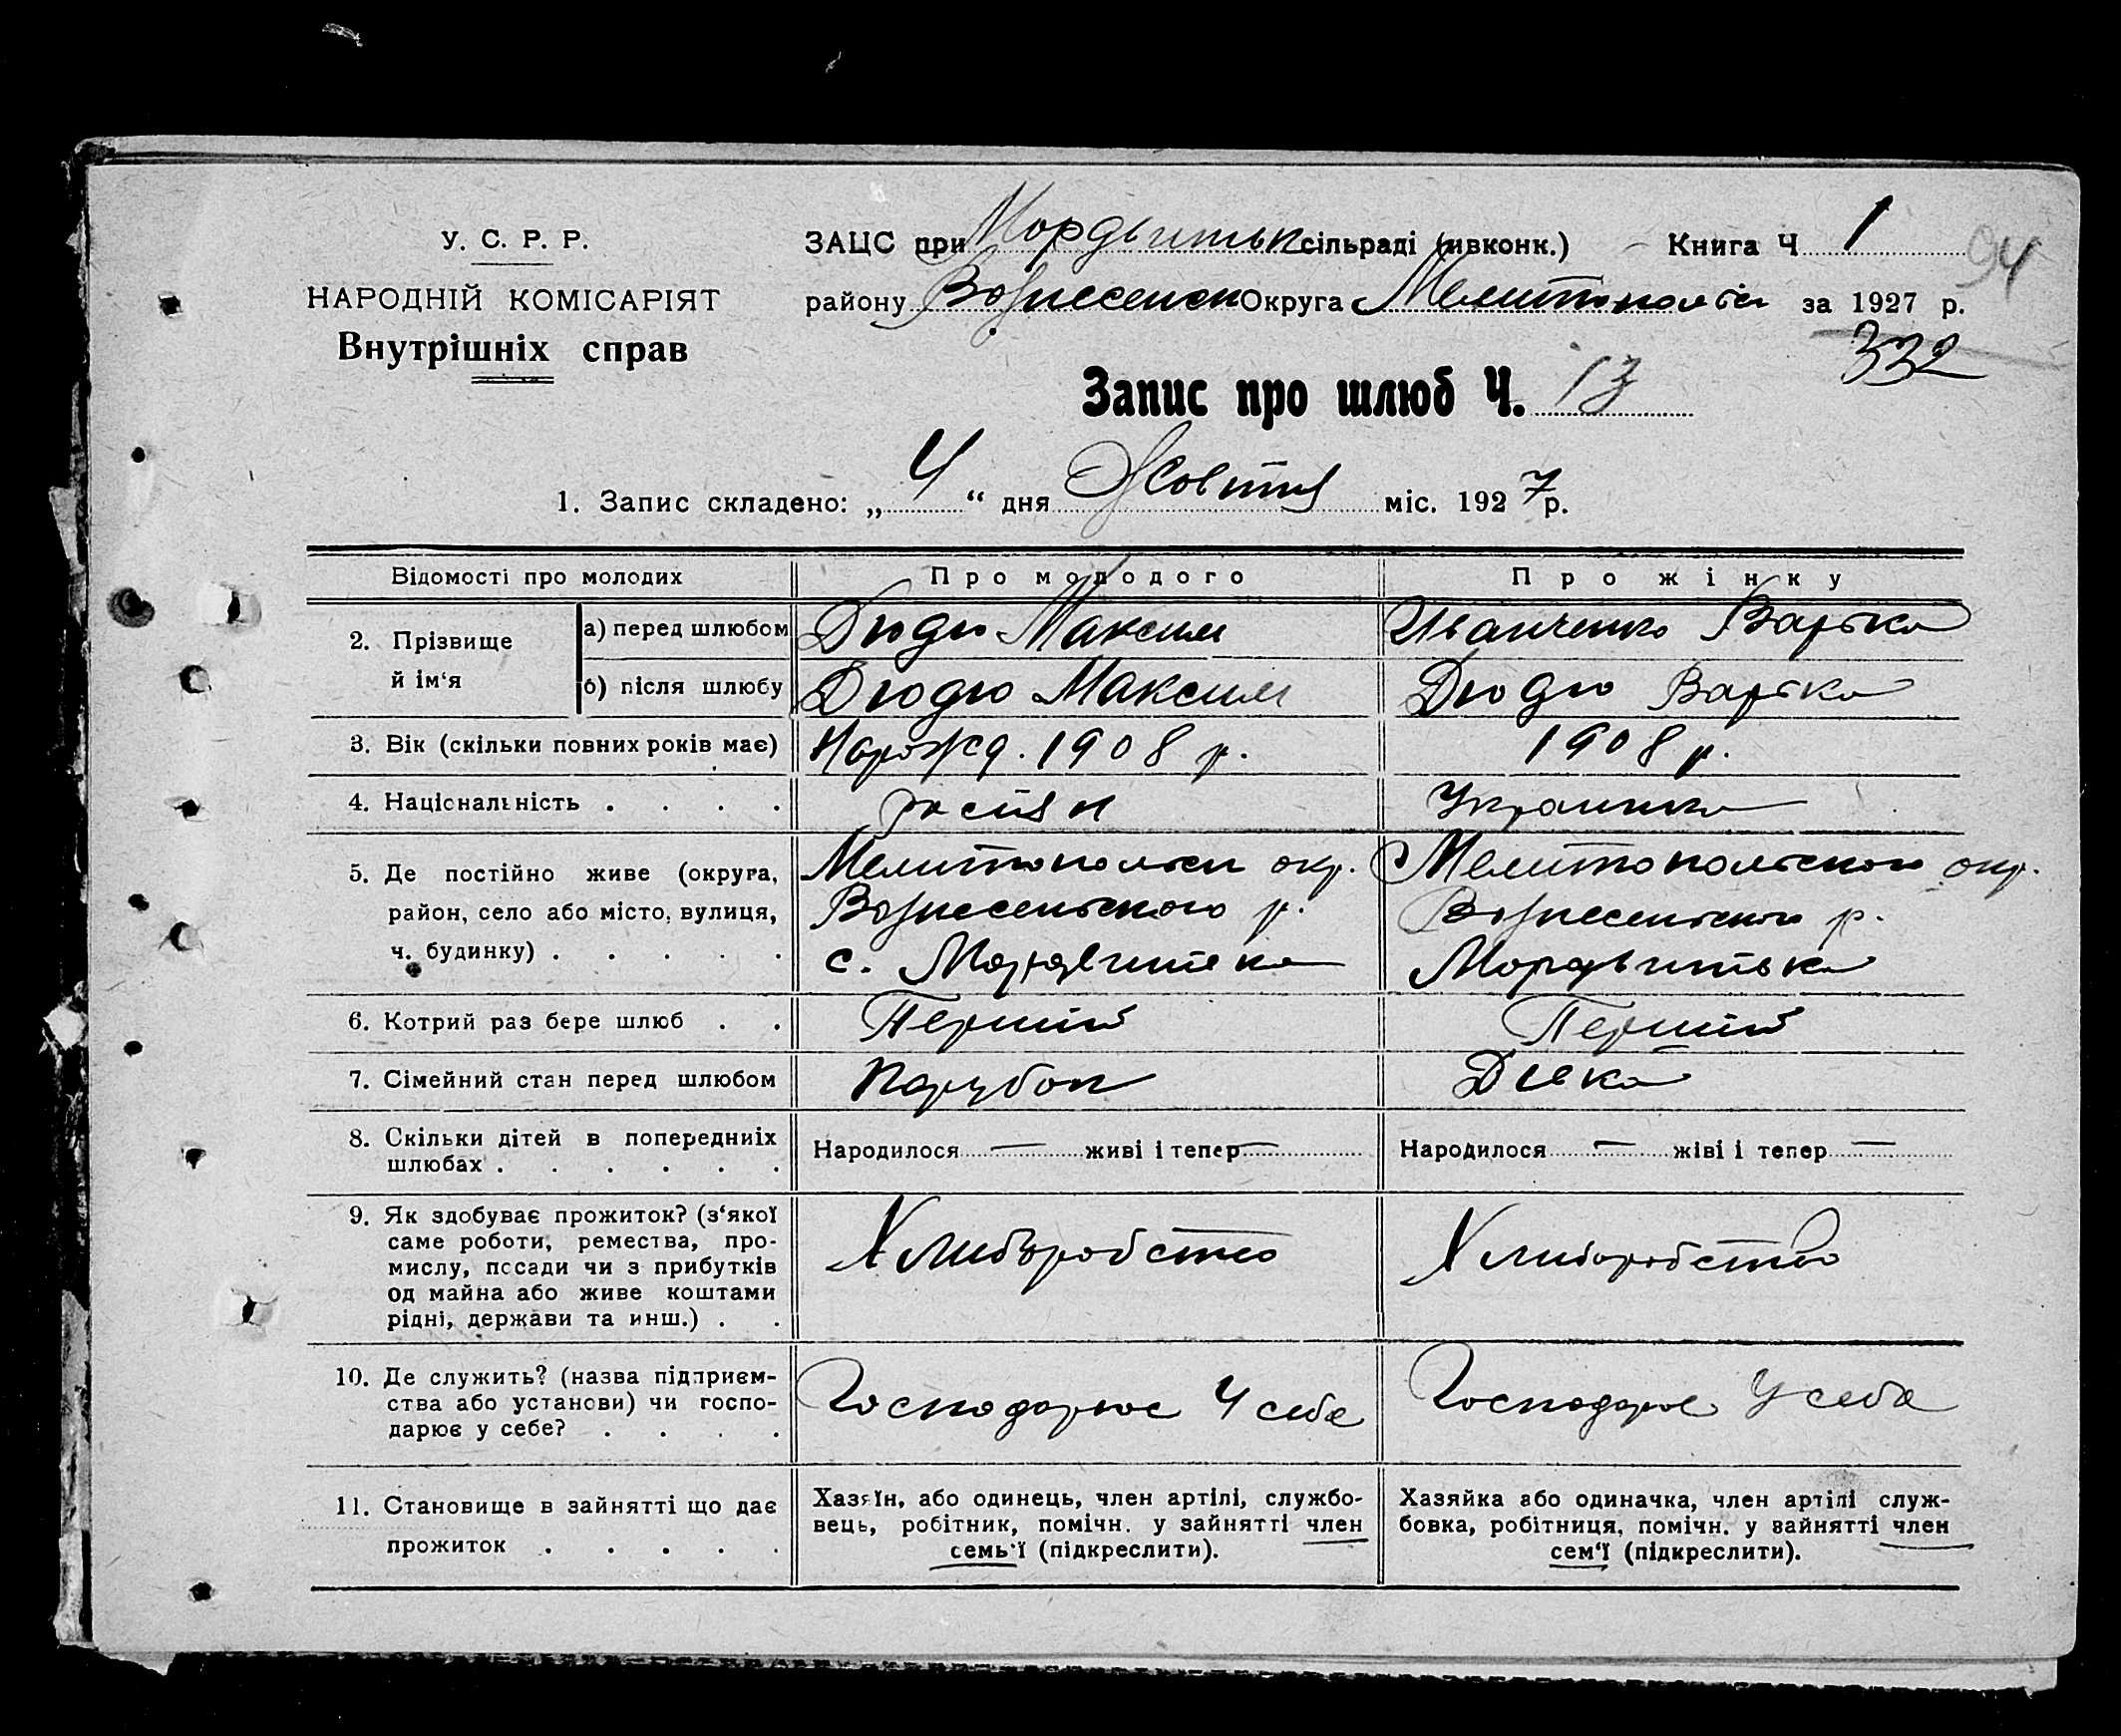 У. С. Р. Р.
НАРОДНІЙ КОМІСАРІЯТ
Внутрішніх справ
ЗАЦС при Мордвитьк сільраді (мвконк.) Книга Ч 1
94
району Вознесенск Округа Мелитопольськ за 1927 р.
332
Запис про шлюб Ч. 13
1. Запис складено: „ 4 “ дня Жовтня міс. 1927 р.
Відомості про молодих Про молодого Про жінку
2. Прізвище й ім‘я
а) перед шлюбом Дюдю Максим Иванченко Варька
б) після шлюбу Дюдю Максим Дюдю Варька
3. Вік (скільки повних років має) Нарожд. 1908 р. 1908 р.
4. Національність . . . . росіян Украинка
5. Де постійно живе (округа, Мелитопольськ окр. Мелитопольского окр.
район, село або місто, вулиця, Вознесенського р. Вознесенского р.
ч. будинку) . . . . . с. Мордвитька Мордвитька
6. Котрий раз бере шлюб . . Перший Перший
7. Сімейний стан перед шлюбом Парубок Дівка
8. Скільки дітей в попередниіх
шлюбах . . . . . . Народилося — живі і тепер — Народилося — жіві і тепер —
9. Як здобуває прожиток? (з‘якої
саме роботи, ремества, про-
мислу, посади чи з прибутків
од майна або живе коштами
рідні, держави та инш.) . .
Хлиборобство Хлиборобство
10. Де служить? (назва підприєм-
ства або установи) чи госпо-
дарює у себе? . . . .
Господарює У себе Господарює У себе
11. Становище в зайнятті що дає
прожиток . . . . .
Хазяїн, або одинець, член артілі, службо-
вець, робітник, помічн. у зайнятті член
семь‘ї (підкреслити).
Хазяйка або одиначка, член артілі служ-
бовка, робітниця, помічн. у зайнятті член
сем‘ї (підкреслити).